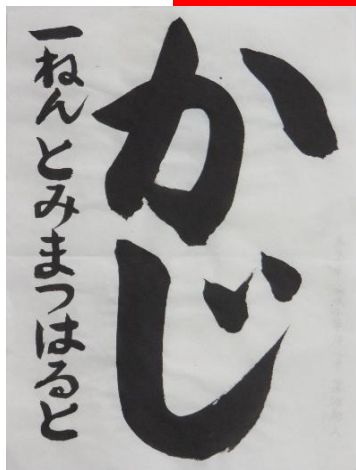 かじ
一ねん とみまつはると